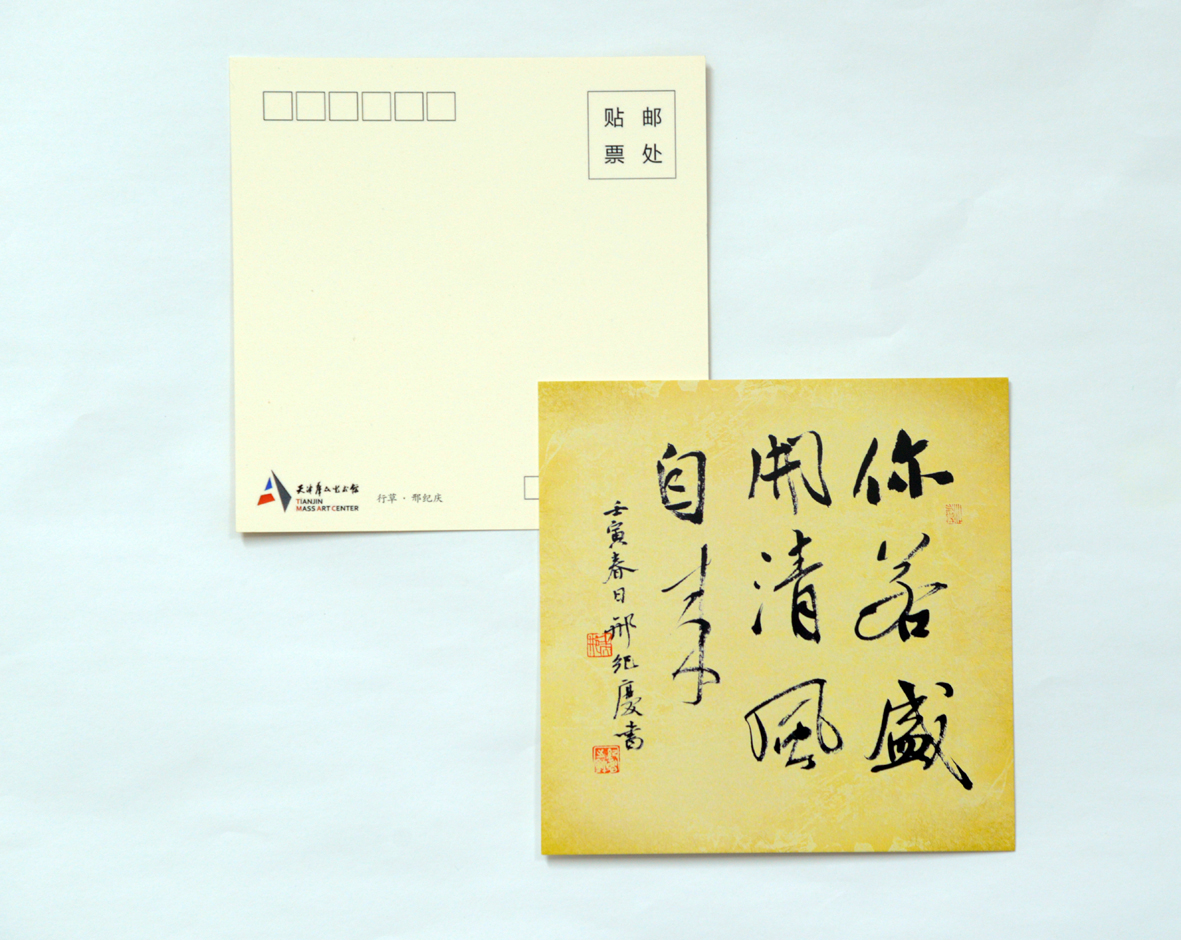 贴邮
票处
天津群众艺术馆
TIANJIN
MASS ART CENTER
行草·邢纪庆
你若盛
開清風
自来
壬寅春日邢纪慶書